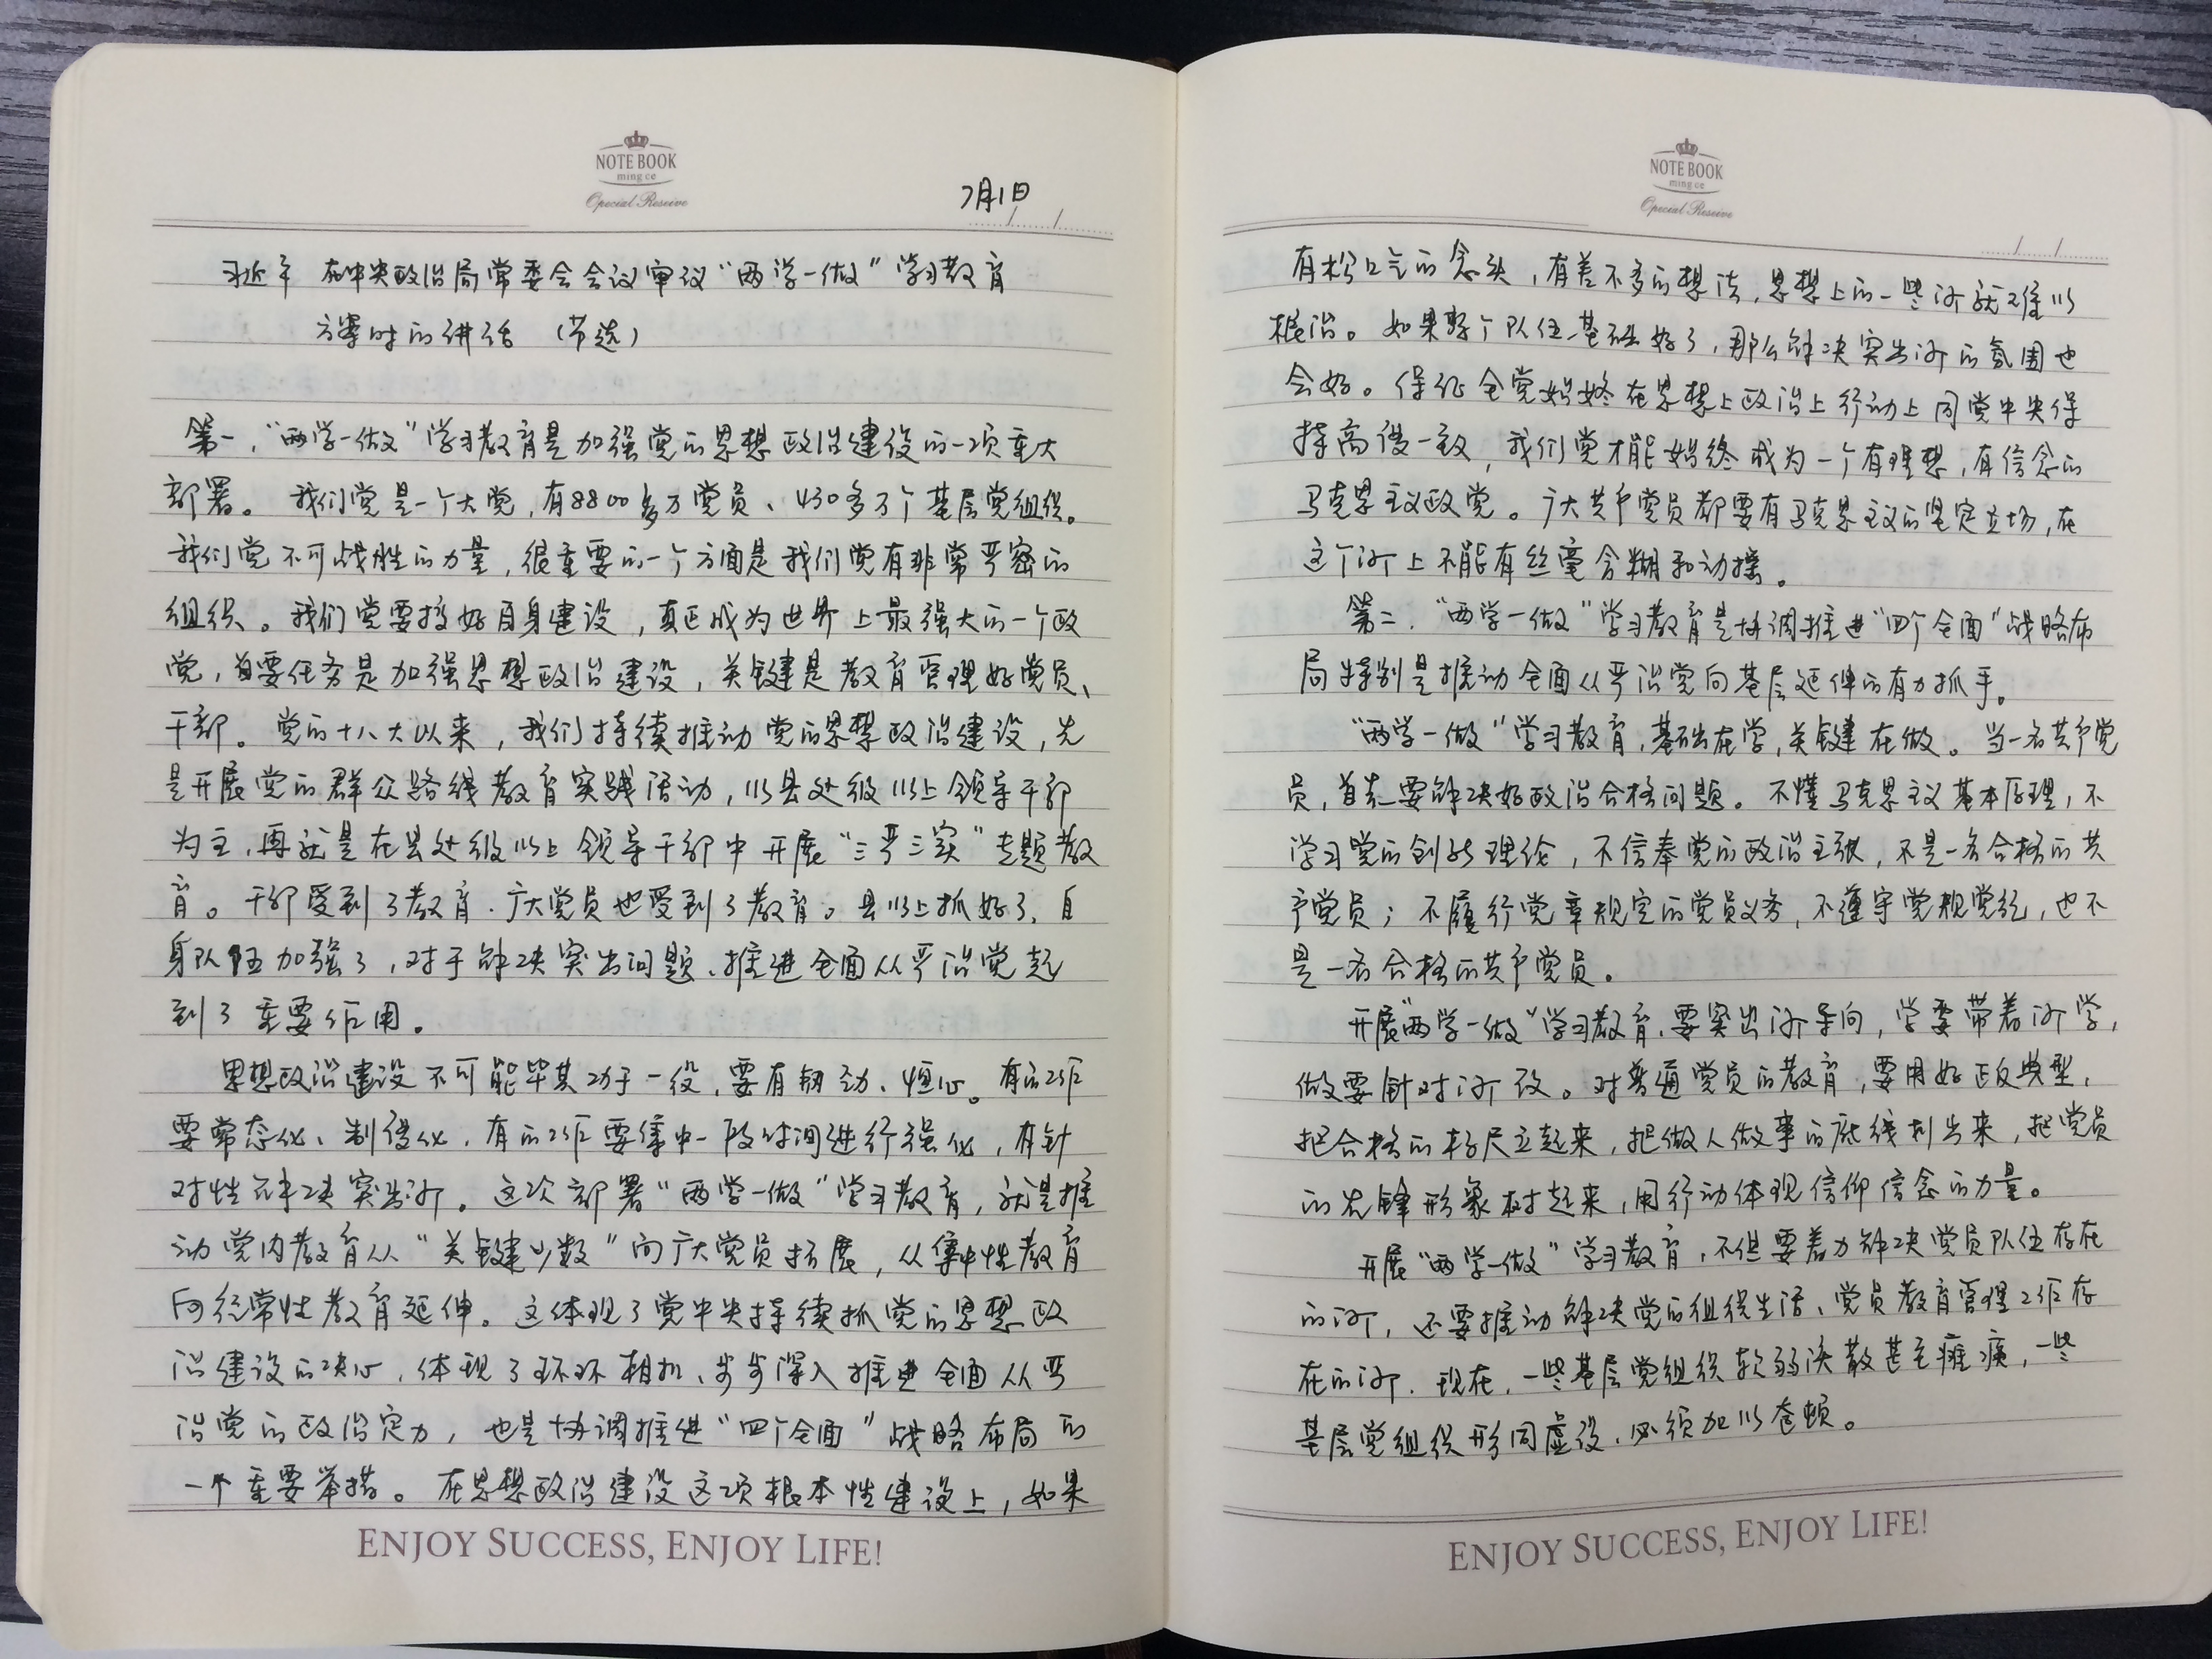 NOTE BOOK
ming ce
Special Reseive
7月1日
习近平 在中央政治局常委会会议审议“两学一做”学习教育
方案时的讲话（节选）
第一，“两学一做”学习教育是加强党的思想政治建设的一项重大
部署。我们党是一个大党，有8800多万党员、430多万个基层党组织。
我们党不可战胜的力量，很重要的一个方面是我们党有非常严密的
组织。我们党要搞好自身建设，真正成为世界上最强大的一个政
党，首要任务是加强思想政治建设，关键是教育管理好党员、
干部。党的十八大以来，我们持续推动党的思想政治建设，先
是开展党的群众路线教育实践活动，以县处级以上领导干部
为主，再就是在县处级以上领导干部中开展“三严三实”专题教
育。干部受到了教育，广大党员也受到了教育。县以上抓好了，自
身队伍加强了，对于解决突出问题、推进全面从严治党起
到了重要作用。
思想政治建设不可能毕其功于一役，要有韧劲、恒心。有的工作
要常态化、制度化，有的工作要集中一段时间进行强化，有针
对性解决突出问题。这次部署“两学一做”学习教育，就是推
动党内教育从“关键少数”向广大党员拓展，从集中性教育
向经常性教育延伸。这体现了党中央持续抓党的思想政
治建设的决心，体现了环环相扣、步步深入推进全面从严
治党的政治定力，也是协调推进“四个全面”战略布局的
一个重要举措。在思想政治建设这项根本性建设上，如果
ENJOY SUCCESS, ENJOY LIFE!
NOTE BOOK
ming ce
Special Reseive
有松口气的念头，有差不多的想法，思想上的一些问题就难以
根治。如果整个队伍基础好了，那么解决突出问题的氛围也
会好。保证全党始终在思想上政治上行动上同党中央保
持高度一致，我们党才能始终成为一个有理想，有信念的
马克思主义政党。广大共产党员都要有马克思主义的坚定立场，在
这个问题上不能有丝毫含糊和动摇。
第二，“两学一做”学习教育是协调推进“四个全面”战略布
局特别是推动全面从严治党向基层延伸的有力抓手。
“两学一做”学习教育，基础在学，关键在做。当一名共产党
员，首先要解决好政治合格问题。不懂马克思主义基本原理，不
学习党的创新理论，不信奉党的政治主张，不是一名合格的共
产党员；不履行党章规定的党员义务，不遵守党规党纪，也不
是一名合格的共产党员。
开展“两学一做”学习教育，要突出问题导向，学要带着问题学，
做要针对问题改。对普通党员的教育，要用好正反典型，
把合格的标尺立起来，把做人做事的底线划出来，把党员
的先锋形象树起来，用行动体现信仰信念的力量。
开展“两学一做”学习教育，不但要着力解决党员队伍存在
的问题，还要推动解决党的组织生活、党员教育管理工作存
在的问题。现在，一些基层党组织软弱涣散甚至瘫痪，一些
基层党组织形同虚设，必须加以整顿。
ENJOY SUCCESS, ENJOY LIFE!